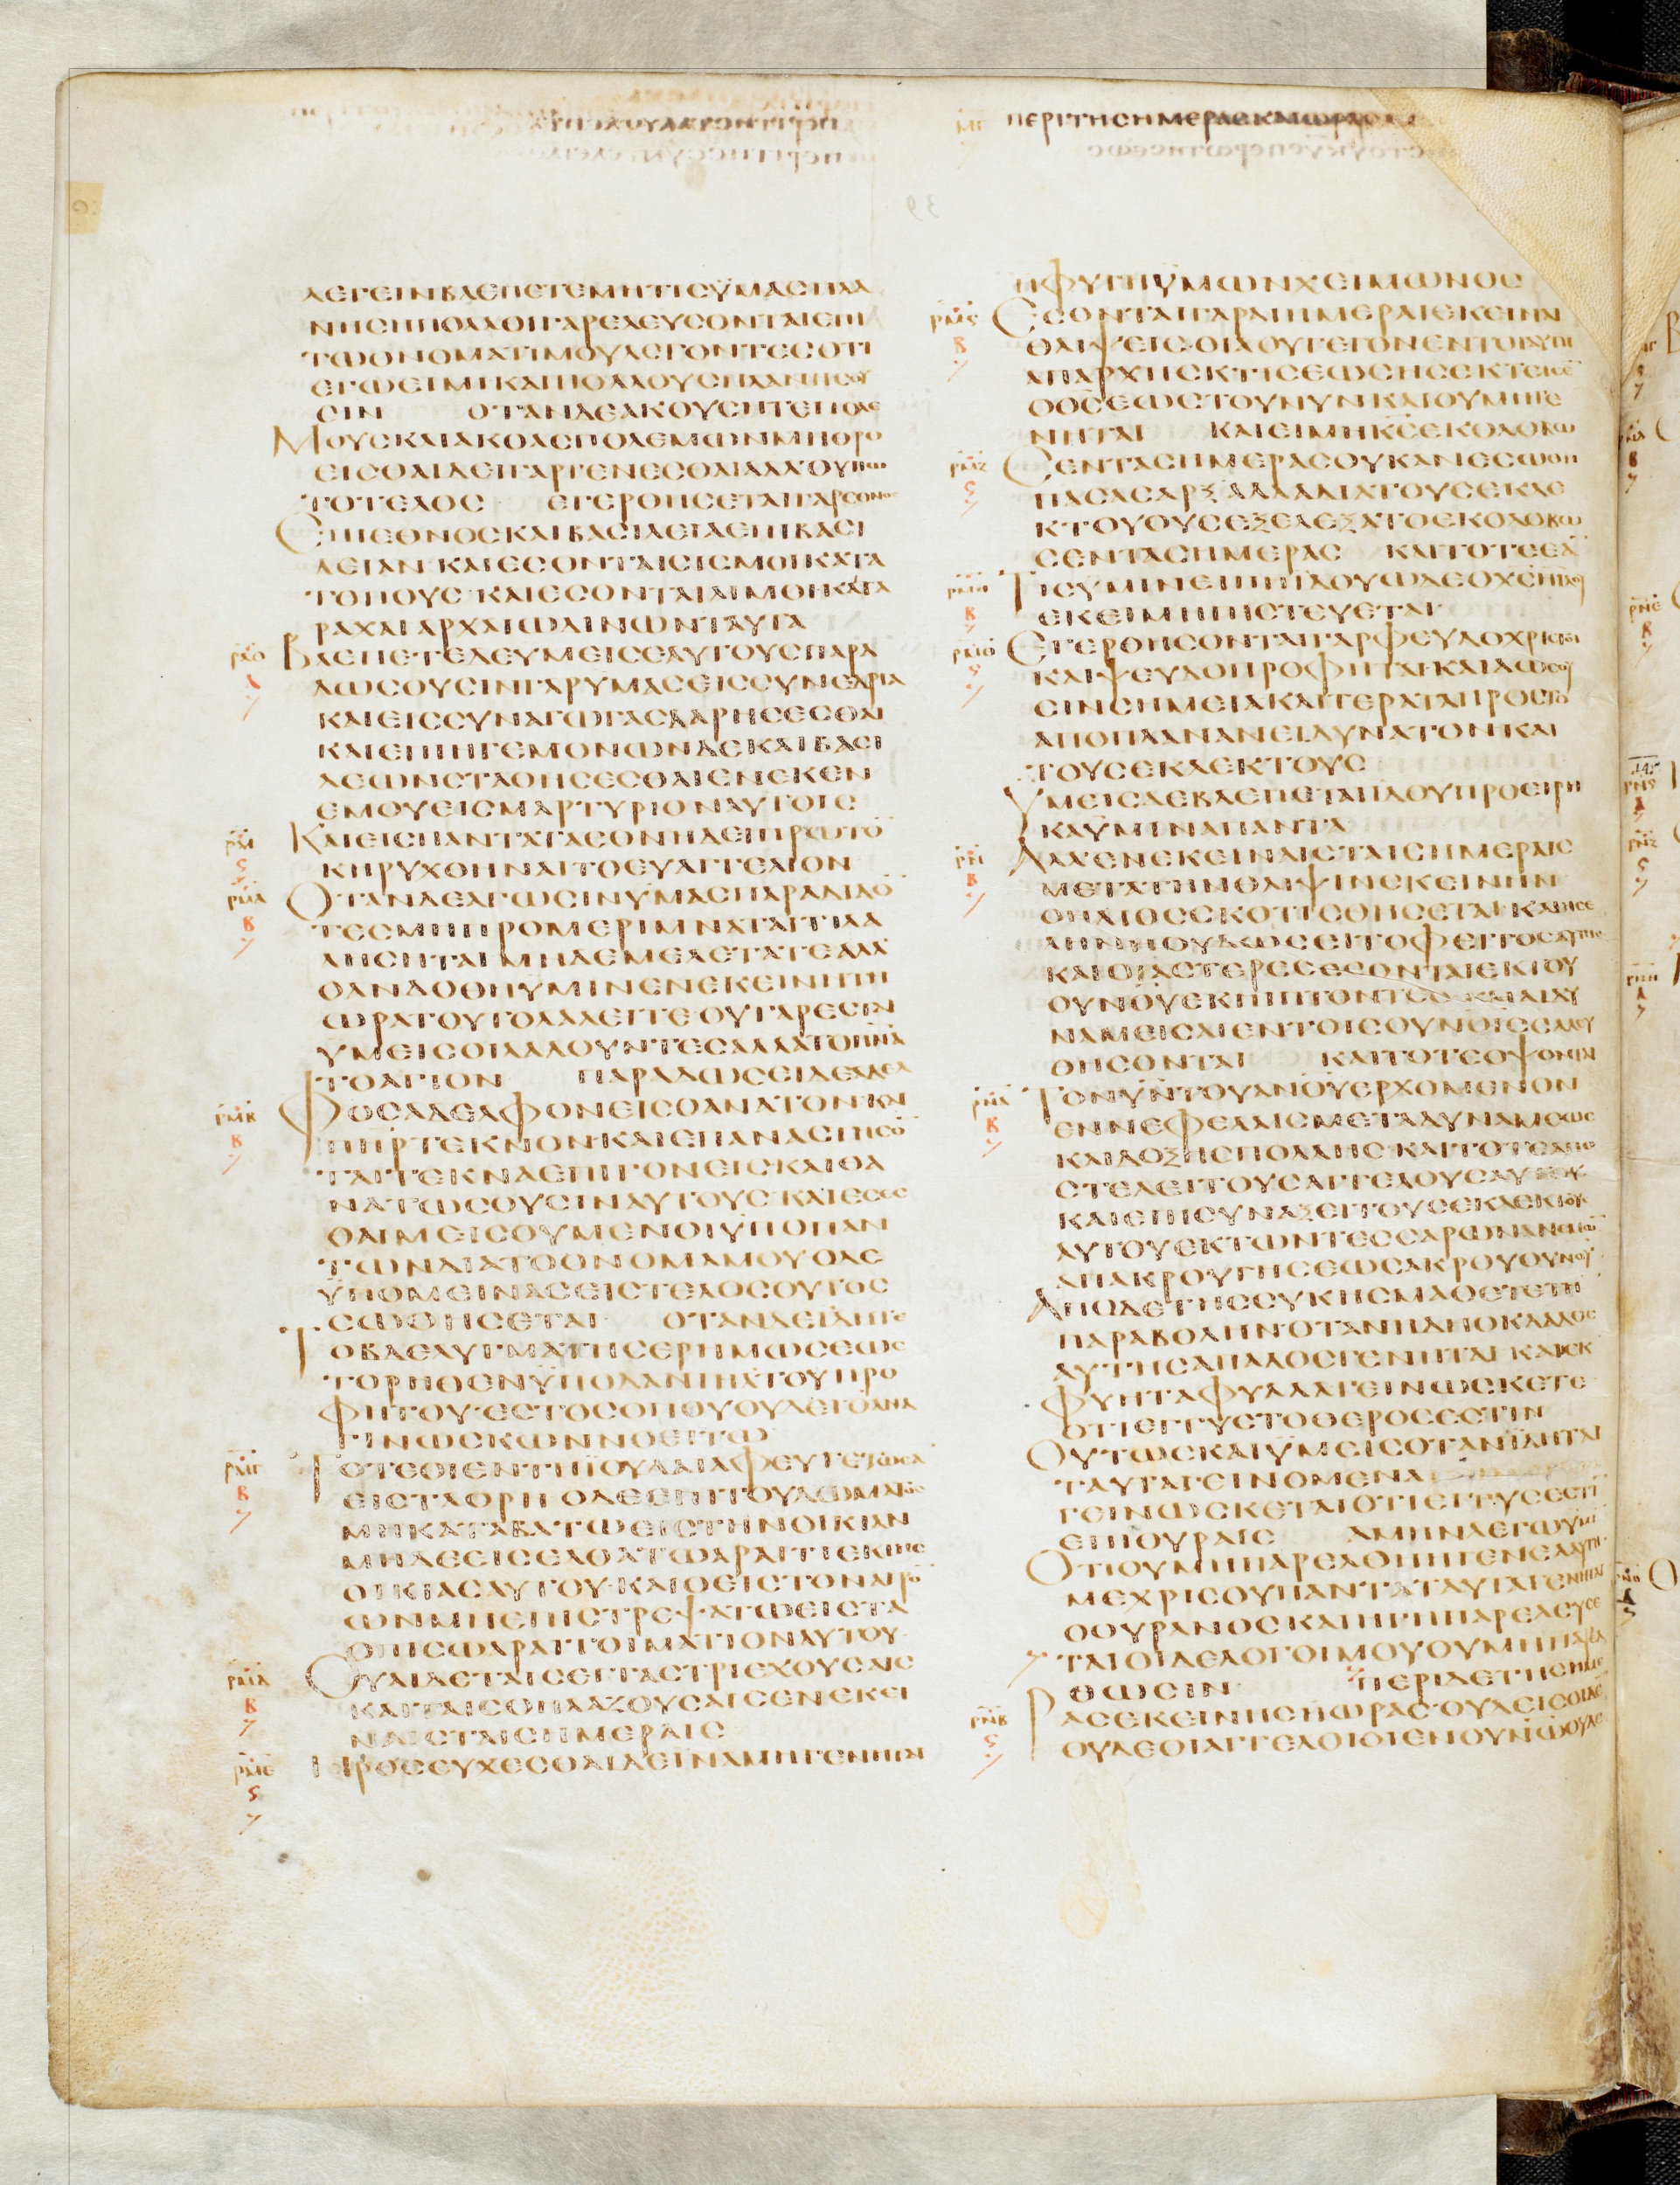 ΠΕΡΙΤΗΣΗΜΕΡΑΣΚΑΙΩΡΑΣ
ΛΕΓΕΙΝΒΛΕΠΕΤΕΜΗΤΙΣΫΜΑΣΠΛΑ
ΝΗΣΗΠΟΛΛΟΙΓΑΡΕΛΕΥΣΟΝΤΑΙΕΠΙ
ΤΩΟΝΟΜΑΤΙΜΟΥΛΕΓΟΝΤΕΣΟΤΙ
ΕΓΩΕΙΜΙΚΑΙΠΟΛΛΟΥΣΠΛΑΝΗΣΟΥ
ΣΙΝ ΟΤΑΝΔΕΑΚΟΥΣΗΤΕΠΟΛΕ
ΜΟΥΣΚΑΙΑΚΟΑΣΠΟΛΕΜΩΝΜΗΘΡΟ
ΕΙΣΘΑΙΔΕΙΓΑΡΓΕΝΕΣΘΑΙΑΛΛΟΥΠΩ
ΤΟΤΕΛΟΣ ΕΓΕΡΘΗΣΕΤΑΙΓΑΡΕΘΝΟΣ
ΕΠΙΕΘΝΟΣΚΑΙΒΑΣΙΛΕΙΑΕΠΙΒΑΣΙ
ΛΕΙΑΝ·ΚΑΙΕΣΟΝΤΑΙΣΙΣΜΟΙΚΑΤΑ
ΤΟΠΟΥΣ·ΚΑΙΕΣΟΝΤΑΙΛΙΜΟΙΚΑΙΤΑ
ΡΑΧΑΙΑΡΧΑΙΩΔΙΝΩΝΤΑΥΤΑ
ΡΛΘ ΒΛΕΠΕΤΕΔΕΥΜΕΙΣΕΑΥΤΟΥΣΠΑΡΑ
Α ΔΩΣΟΥΣΙΝΓΑΡΥΜΑΣΕΙΣΣΥΝΕΔΡΙΑ
ΚΑΙΕΙΣΣΥΝΑΓΩΓΑΣΔΑΡΗΣΕΣΘΑΙ
ΚΑΙΕΠΙΗΓΕΜΟΝΩΝΔΕΚΑΙΒΑΣΙ
ΛΕΩΝΣΤΑΘΗΣΕΣΘΑΙΕΝΕΚΕΝ
ΕΜΟΥΕΙΣΜΑΡΤΥΡΙΟΝΑΥΤΟΙΣ
ΡΜ ΚΑΙΕΙΣΠΑΝΤΑΤΑΕΘΝΗΔΕΙΠΡΩΤΟ̅
Ϛ ΚΗΡΥΧΘΗΝΑΙΤΟΕΥΑΓΓΕΛΙΟΝ
ΡΜΑ ΟΤΑΝΔΕΑΓΩΣΙΝΥΜΑΣΠΑΡΑΔΙΔΟ̅
Β ΤΕΣΜΗΠΡΟΜΕΡΙΜΝΑΤΑΙΤΙΛΑ
ΛΗΣΗΤΑΙΜΗΔΕΜΕΛΕΤΑΤΕΑΛΛ
ΟΑΝΔΟΘΗΥΜΙΝΕΝΕΚΕΙΝΗΤΗ
ΩΡΑΤΟΥΤΟΛΑΛΕΙΤΕ·ΟΥΓΑΡΕΣΙΝ
ΥΜΕΙΣΟΙΛΑΛΟΥΝΤΕΣΑΛΛΑΤΟΠΝΑ
ΤΟΑΓΙΟΝ ΠΑΡΑΔΩΣΕΙΔΕΑΔΕΛ
ΡΜΒ ΦΟΣΑΔΕΛΦΟΝΕΙΣΘΑΝΑΤΟΝ·ΚΑΙ
Β ΠΗΡΤΕΚΝΟΝ·ΚΑΙΕΠΑΝΑΣΤΗΣΟ̅
ΤΑΙΤΕΚΝΑΕΠΙΓΟΝΕΙΣΚΑΙΘΑ
ΝΑΤΩΣΟΥΣΙΝΑΥΤΟΥΣ·ΚΑΙΕΣΕΣ
ΘΑΙΜΕΙΣΟΥΜΕΝΟΙΫΠΟΠΑΝ
ΤΩΝΔΙΑΤΟΟΝΟΜΑΜΟΥΟΔΕ
ΫΠΟΜΕΙΝΑΣΕΙΣΤΕΛΟΣΟΥΤΟΣ
ΣΩΘΗΣΕΤΑΙ ΟΤΑΝΔΕΙΔΗΤΕ
ΤΟΒΔΕΛΥΓΜΑΤΗΣΕΡΗΜΩΣΕΩΣ
ΤΟΡΗΘΕΝΫΠΟΔΑΝΙΗΛΤΟΥΠΡΟ
ΦΗΤΟΥ·ΕΣΤΟΣΟΠΟΥΟΥΔΕΙΟΑΝΑ
ΓΙΝΩΣΚΩΝΝΟΕΙΤΩ
ΡΜΓ ΤΟΤΕΟΙΕΝΤΗΪΟΥΔΑΙΑΦΕΥΓΕΤΩΣΑ̅
Β ΕΙΣΤΑΟΡΗ ΟΔΕΕΠΙΤΟΥΔΩΜΑΤΟΣ
ΜΗΚΑΤΑΒΑΤΩΕΙΣΤΗΝΟΙΚΙΑΝ
ΜΗΔΕΕΙΣΕΛΘΑΤΩΑΡΑΙΤΙΕΚΤΗΣ
ΟΙΚΙΑΣΑΥΤΟΥ·ΚΑΙΟΕΙΣΤΟΝΑΓΡΟ̅
ΩΝΜΗΕΠΙΣΤΡΕΨΑΤΩΕΙΣΤΑ
ΟΠΙΣΩΑΡΑΙΤΟΙΜΑΤΙΟΝΑΥΤΟΥ·
ΡΜΔ ΟΥΑΙΔΕΤΑΙΣΕΝΓΑΣΤΡΙΕΧΟΥΣΑΙΣ
Β ΚΑΙΤΑΙΣΘΗΛΑΖΟΥΣΑΙΣΕΝΕΚΕΙ
ΝΑΙΣΤΑΙΣΗΜΕΡΑΙΣ
ΡΜΕ ΠΡΟΣΕΥΧΕΣΘΑΙΔΕΙΝΑΜΗΓΕΝΗΤΑΙ
Ϛ
ΗΦΥΓΗΫΜΩΝΧΕΙΜΩΝΟΣ
ΡΜϚ ΕΣΟΝΤΑΙΓΑΡΑΙΗΜΕΡΑΙΕΚΕΙΝΑΙ
Β ΘΛΙΨΕΙΣΟΙΑΟΥΓΕΓΟΝΕΝΤΟΙΑΥΤΗ
ΑΠΑΡΧΗΣΚΤΙΣΕΩΣΗΣΕΚΤΙΣΕ̅
ΟΘΣΕΩΣΤΟΥΝΥΝΚΑΙΟΥΜΗΓΕ
ΝΗΤΑΙ ΚΑΙΕΙΜΗΚΣΕΚΟΛΟΒΩ
ΡΜΖ ΣΕΝΤΑΣΗΜΕΡΑΣΟΥΚΑΝΕΣΩΘΗ
Ϛ ΠΑΣΑΣΑΡΞ ΑΛΛΑΔΙΑΤΟΥΣΕΚΛΕ
ΚΤΟΥΣΟΥΣΕΞΕΛΕΞΑΤΟΕΚΟΛΟΒΩ
ΣΕΝΤΑΣΗΜΕΡΑΣ ΚΑΙΤΟΤΕΕΑ̅
ΡΜΗ ΤΙΣΥΜΙΝΕΙΠΗΪΔΟΥΩΔΕΟΧΣΗΪΔΟΥ
Β ΕΚΕΙΜΗΠΙΣΤΕΥΕΤΑΙ
ΡΜΘ ΕΓΕΡΘΗΣΟΝΤΑΙΓΑΡΦΕΥΔΟΧΡΙΣΤΟΙ
Ϛ ΚΑΙΨΕΥΔΟΠΡΟΦΗΤΑΙ·ΚΑΙΔΩΣΟΥ
ΣΙΝΣΗΜΕΙΑΚΑΙΤΕΡΑΤΑΠΡΟΣΤΟ
ΑΠΟΠΛΑΝΑΝΕΙΔΥΝΑΤΟΝΚΑΙ
ΤΟΥΣΕΚΛΕΚΤΟΥΣ
ΥΜΕΙΣΔΕΒΛΕΠΕΤΑΙΪΔΟΥΠΡΟΕΙΡΗ
ΚΑΫΜΙΝΑΠΑΝΤΑ
ΡΝ ΑΛΛΕΝΕΚΕΙΝΑΙΣΤΑΙΣΗΜΕΡΑΙΣ
Β ΜΕΤΑΤΗΝΘΛΙΨΙΝΕΚΕΙΝΗΝ
ΟΗΛΙΟΣΣΚΟΤΙΣΘΗΣΕΤΑΙ·ΚΑΙΗΣΕ
ΛΗΝΗΟΥΔΩΣΕΙΤΟΦΕΓΓΟΣΑΥΤΗΣ
ΚΑΙΟΙΑΣΤΕΡΕΣΕΣΟΝΤΑΙΕΚΤΟΥ
ΟΥΝΟΥΕΚΠΙΠΤΟΝΤΕΣ ΚΑΙΑΙΔΥ
ΝΑΜΕΙΣΑΙΕΝΤΟΙΣΟΥΝΟΙΣΣΑΛΕΥ
ΘΗΣΟΝΤΑΙ ΚΑΙΤΟΤΕΟΨΟΝΤΑΙ
ΡΝΑ ΤΟΝΥΝΤΟΥΑΝΟΥΕΡΧΟΜΕΝΟΝ
Β ΕΝΝΕΦΕΛΑΙΣΜΕΤΑΔΥΝΑΜΕΩΣ
ΚΑΙΔΟΞΗΣΠΟΛΛΗΣ·ΚΑΙΤΟΤΕΑΠΟ
ΣΤΕΛΕΙΤΟΥΣΑΓΓΕΛΟΥΣΑΥΤΟΥ
ΚΑΙΕΠΙΣΥΝΑΞΕΙΤΟΥΣΕΚΛΕΚΤΟΥΣ
ΑΥΤΟΥΕΚΤΩΝΤΕΣΣΑΡΩΝΑΝΕΜΩ̅
ΑΠΑΚΡΟΥΓΗΣΕΩΣΑΚΡΟΥΟΥΝΟΥ
ΑΠΟΔΕΤΗΣΣΥΚΗΣΜΑΘΕΤΕΤΗ̅
ΠΑΡΑΒΟΛΗΝ·ΟΤΑΝΗΔΗΟΚΛΑΔΟΣ
ΑΥΤΗΣΑΠΑΛΟΣΓΕΝΗΤΑΙ ΚΑΙΕΚ
ΦΥΗΤΑΦΥΛΛΑΓΕΙΝΩΣΚΕΤΕ
ΟΤΙΕΓΓΥΣΤΟΘΕΡΟΣΕΣΤΙΝ
ΟΥΤΩΣΚΑΙΫΜΕΙΣΟΤΑΝΪΔΗΤΑΙ
ΤΑΥΤΑΓΕΙΝΟΜΕΝΑ
ΓΕΙΝΩΣΚΕΤΑΙΟΤΙΕΓΓΥΣΕΣΤΙ̅
ΕΠΙΘΥΡΑΙΣ ΑΜΗΝΛΕΓΩΥΜΙ
ΟΤΙΟΥΜΗΠΑΡΕΛΘΗΗΓΕΝΕΑΑΥΤΗ·
ΜΕΧΡΙΣΟΥΠΑΝΤΑΤΑΥΤΑΓΕΝΗΤΑΙ
ΟΟΥΡΑΝΟΣΚΑΙΗΓΗΠΑΡΕΛΕΥΣΕ
ΤΑΙΟΙΔΕΛΟΓΟΙΜΟΥΟΥΜΗΠΑΡΕΛ
ΘΩΣΙΝ ΠΕΡΙΔΕΤΗΣΗΜΕ
ΡΝΒ ΡΑΣΕΚΕΙΝΗΣΗΩΡΑΣ·ΟΥΔΕΙΣΟΙΔΕ̅
Ϛ ΟΥΔΕΟΙΑΓΓΕΛΟΙΟΙΕΝΟΥΝΩΟΥΔΕ